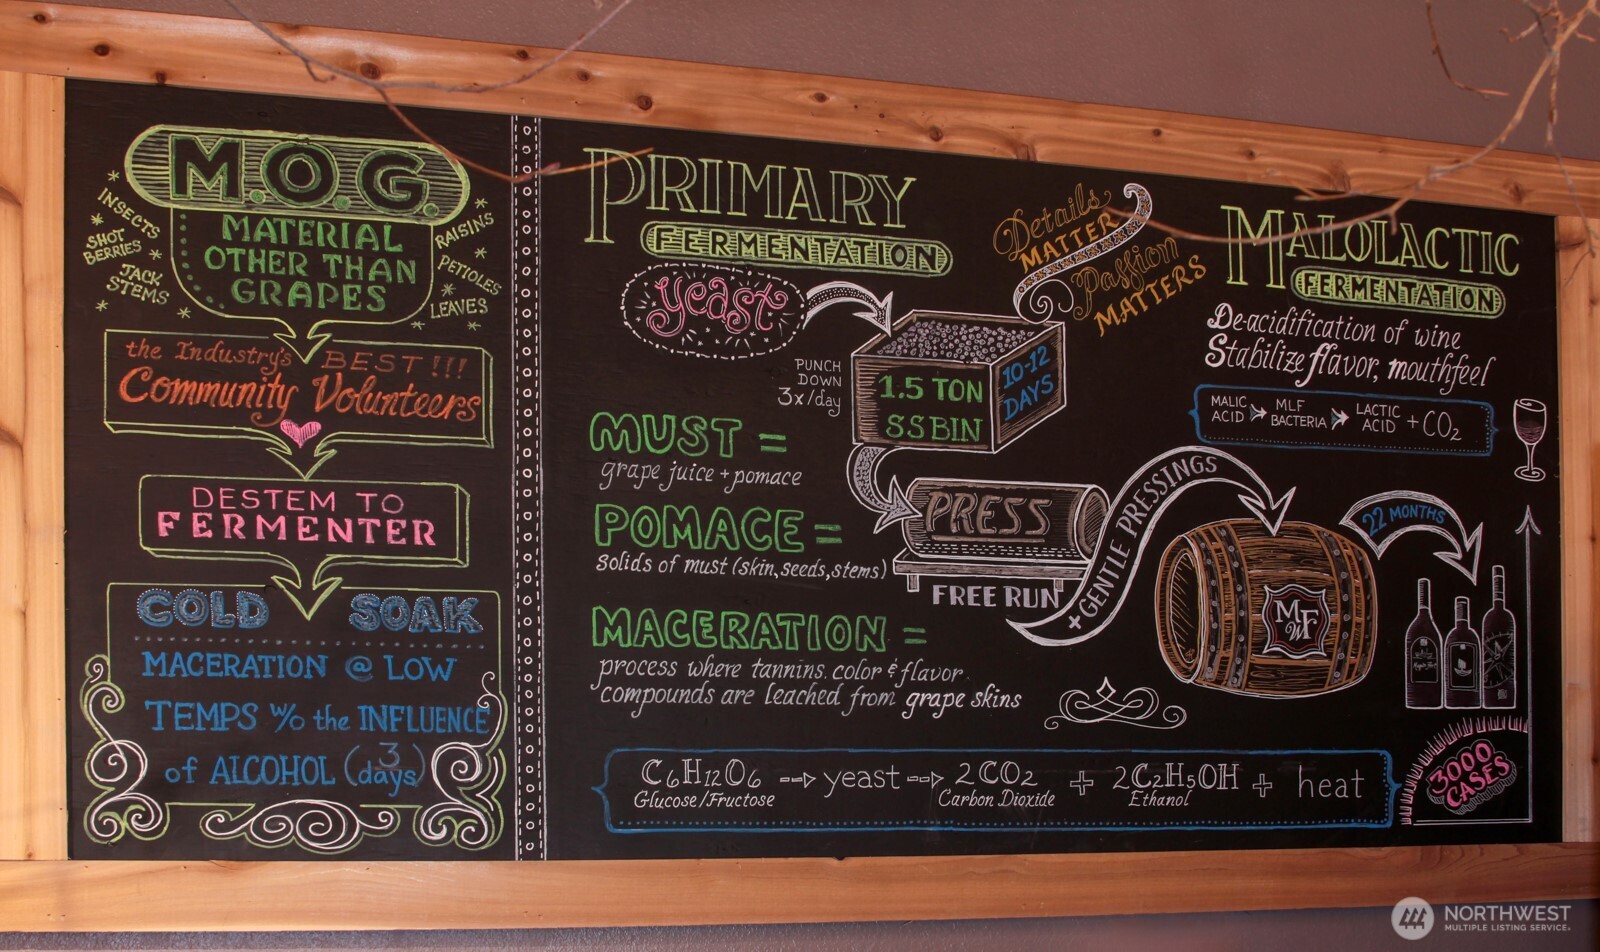 M.O.G.
MATERIAL
OTHER THAN
GRAPES
INSECTS
SHOT
BERRIES
JACK
STEMS
RAISINS
PETIOLES
LEAVES
the Industry's BEST!!!
Community Volunteers
DESTEM TO
FERMENTER
COLD SOAK
MACERATION @ LOW
TEMPS w/o the INFLUENCE
of ALCOHOL (3 days)
PRIMARY
FERMENTATION
yeast
PUNCH
DOWN
3x/day
1.5 TON
SS BIN
10-12
DAYS
Details
MATTER
Passion
MATTERS
MUST =
grape juice + pomace
POMACE =
solids of must (skin, seeds, stems)
MACERATION =
process where tannins, color & flavor
compounds are leached from grape skins
PRESS
FREE RUN
+ GENTLE PRESSINGS
MALOLACTIC
FERMENTATION
De-acidification of wine
Stabilize flavor, mouthfeel
MALIC
ACID
MLF
BACTERIA
LACTIC
ACID
+ CO2
22 MONTHS
MF
W
3000
CASES
C6H12O6 --> yeast --> 2CO2 + 2C2H5OH + heat
Glucose/Fructose Carbon Dioxide Ethanol
NORTHWEST
MULTIPLE LISTING SERVICE®